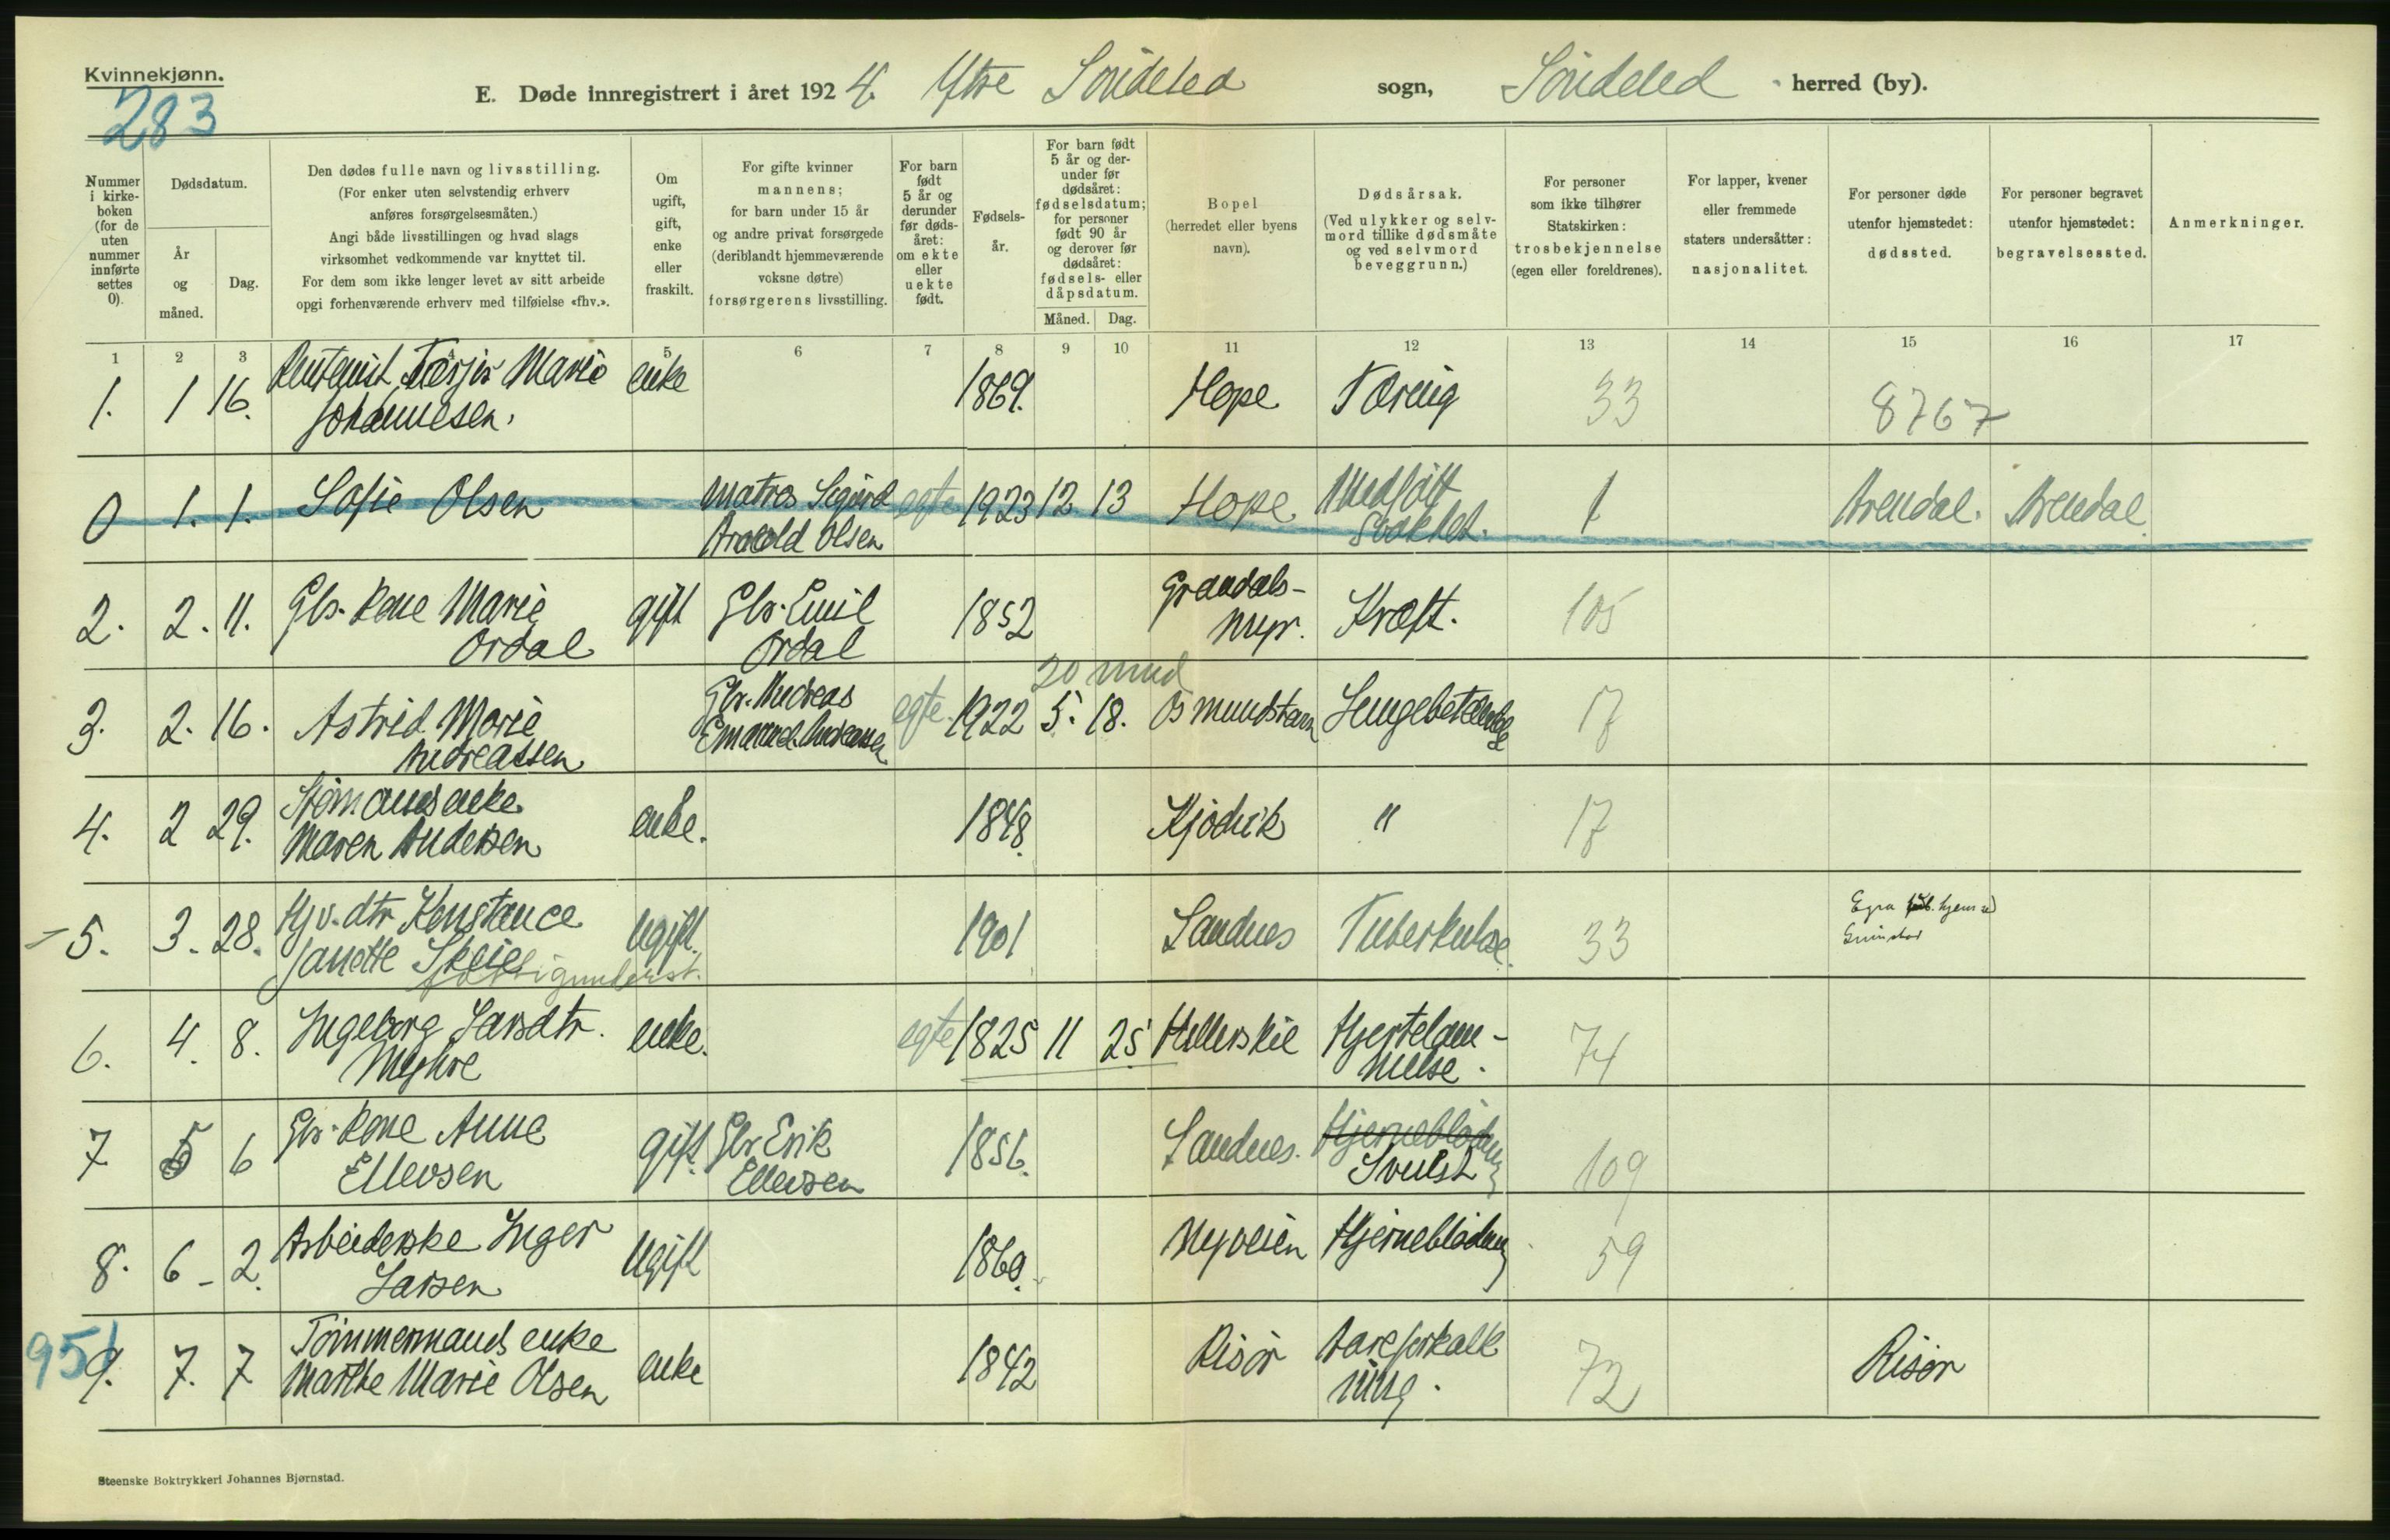 Kvinnekjønn.
283
E. Døde innregistrert i året 1924. Ytre Söndeled sogn, Söndeled herred (by).
Nummer i kirke-boken (for de uten nummer innførte settes 0).
Dødsdatum.
År og måned.
Dag.
Den dødes fulle navn og livsstilling.
(For enker uten selvstendig erhverv
anføres forsørgelsesmåten.)
Angi både livsstillingen og hvad slags
virksomhet vedkommende var knyttet til.
For dem som ikke lenger levet av sitt arbeide
opgi forhenværende erhverv med tilføielse «fhv.».
Om ugift, gift, enke eller fraskilt.
For gifte kvinner
mannens;
for barn under 15 år
og andre privat forsørgede
(deriblandt hjemmeværende
voksne døtre)
forsørgerens livsstilling.
For barn født 5 år og derunder før døds-året: om ekte eller uekte født.
Fødsels-år.
For barn født 5 år og der-under før dødsåret: fødselsdatum; for personer født 90 år og derover før dødsåret: fødsels- eller dåpsdatum.
Måned. Dag.
Bopel
(herredet eller byens
navn).
Dødsårsak.
(Ved ulykker og selv-
mord tillike dødsmåte
og ved selvmord
beveggrunn.)
For personer
som ikke tilhører
Statskirken:
trosbekjennelse
(egen eller foreldrenes).
For lapper, kvener
eller fremmede
staters undersåtter:
nasjonalitet.
For personer døde
utenfor hjemstedet:
dødssted.
For personer begravet
utenfor hjemstedet:
begravelsessted.
Anmerkninger.
1 2 3 4 5 6 7 8 9 10 11 12 13 14 15 16 17
1. 1 16. Marie enke 1869. Hope Tæring 33 8767
Johannesen.
0 1. 1. Sofie Olsen Matros Sigurd egte 1923 12 13 Hope Medfött 1 Arendal. Arendal
Arnold Olsen Svakhet.
2. 2. 11. Gbr. kone Marie gift Gbr. Emil 1852 Grandals- Kræft. 105
Ordal Ordal myr.
20 mnd
3. 2. 16. Astrid Marie Gbr. Andreas egte 1922 5. 18. Osmundstarn Lungebetændelse 17
Andreassen Emanuel Andreassen
4. 2 29. Sjömands enke enke. 1848. Kjödvik " 17
Maren Andersen
5. 3. 28. Hjv. dtr Konstance Ugift. 1901 Sandnes Tuberkulose. 33
Janette Skeie fattigunderst.
6. 4. 8. Ingeborg Larsdtr. enke. egte 1825 11 25 Hellerskil Hjertelam- 74
Myhre melse.
7 5 6 Gbr. kone Anne gift. Gbr Erik 1856. Sandnes. Hjerneblödning 109
Ellevsen Ellevsen Svulst
8. 6 - 2. Arbeiderske Inger Ugift 1860. Nyveien Hjerneblödning 59
Larsen
951
9. 7. 7 Tömmermands enke enke 1842 Risör Aareforkalk 72 Risör
Marthe Marie Olsen ning.
Steenske Boktrykkeri Johannes Bjørnstad.